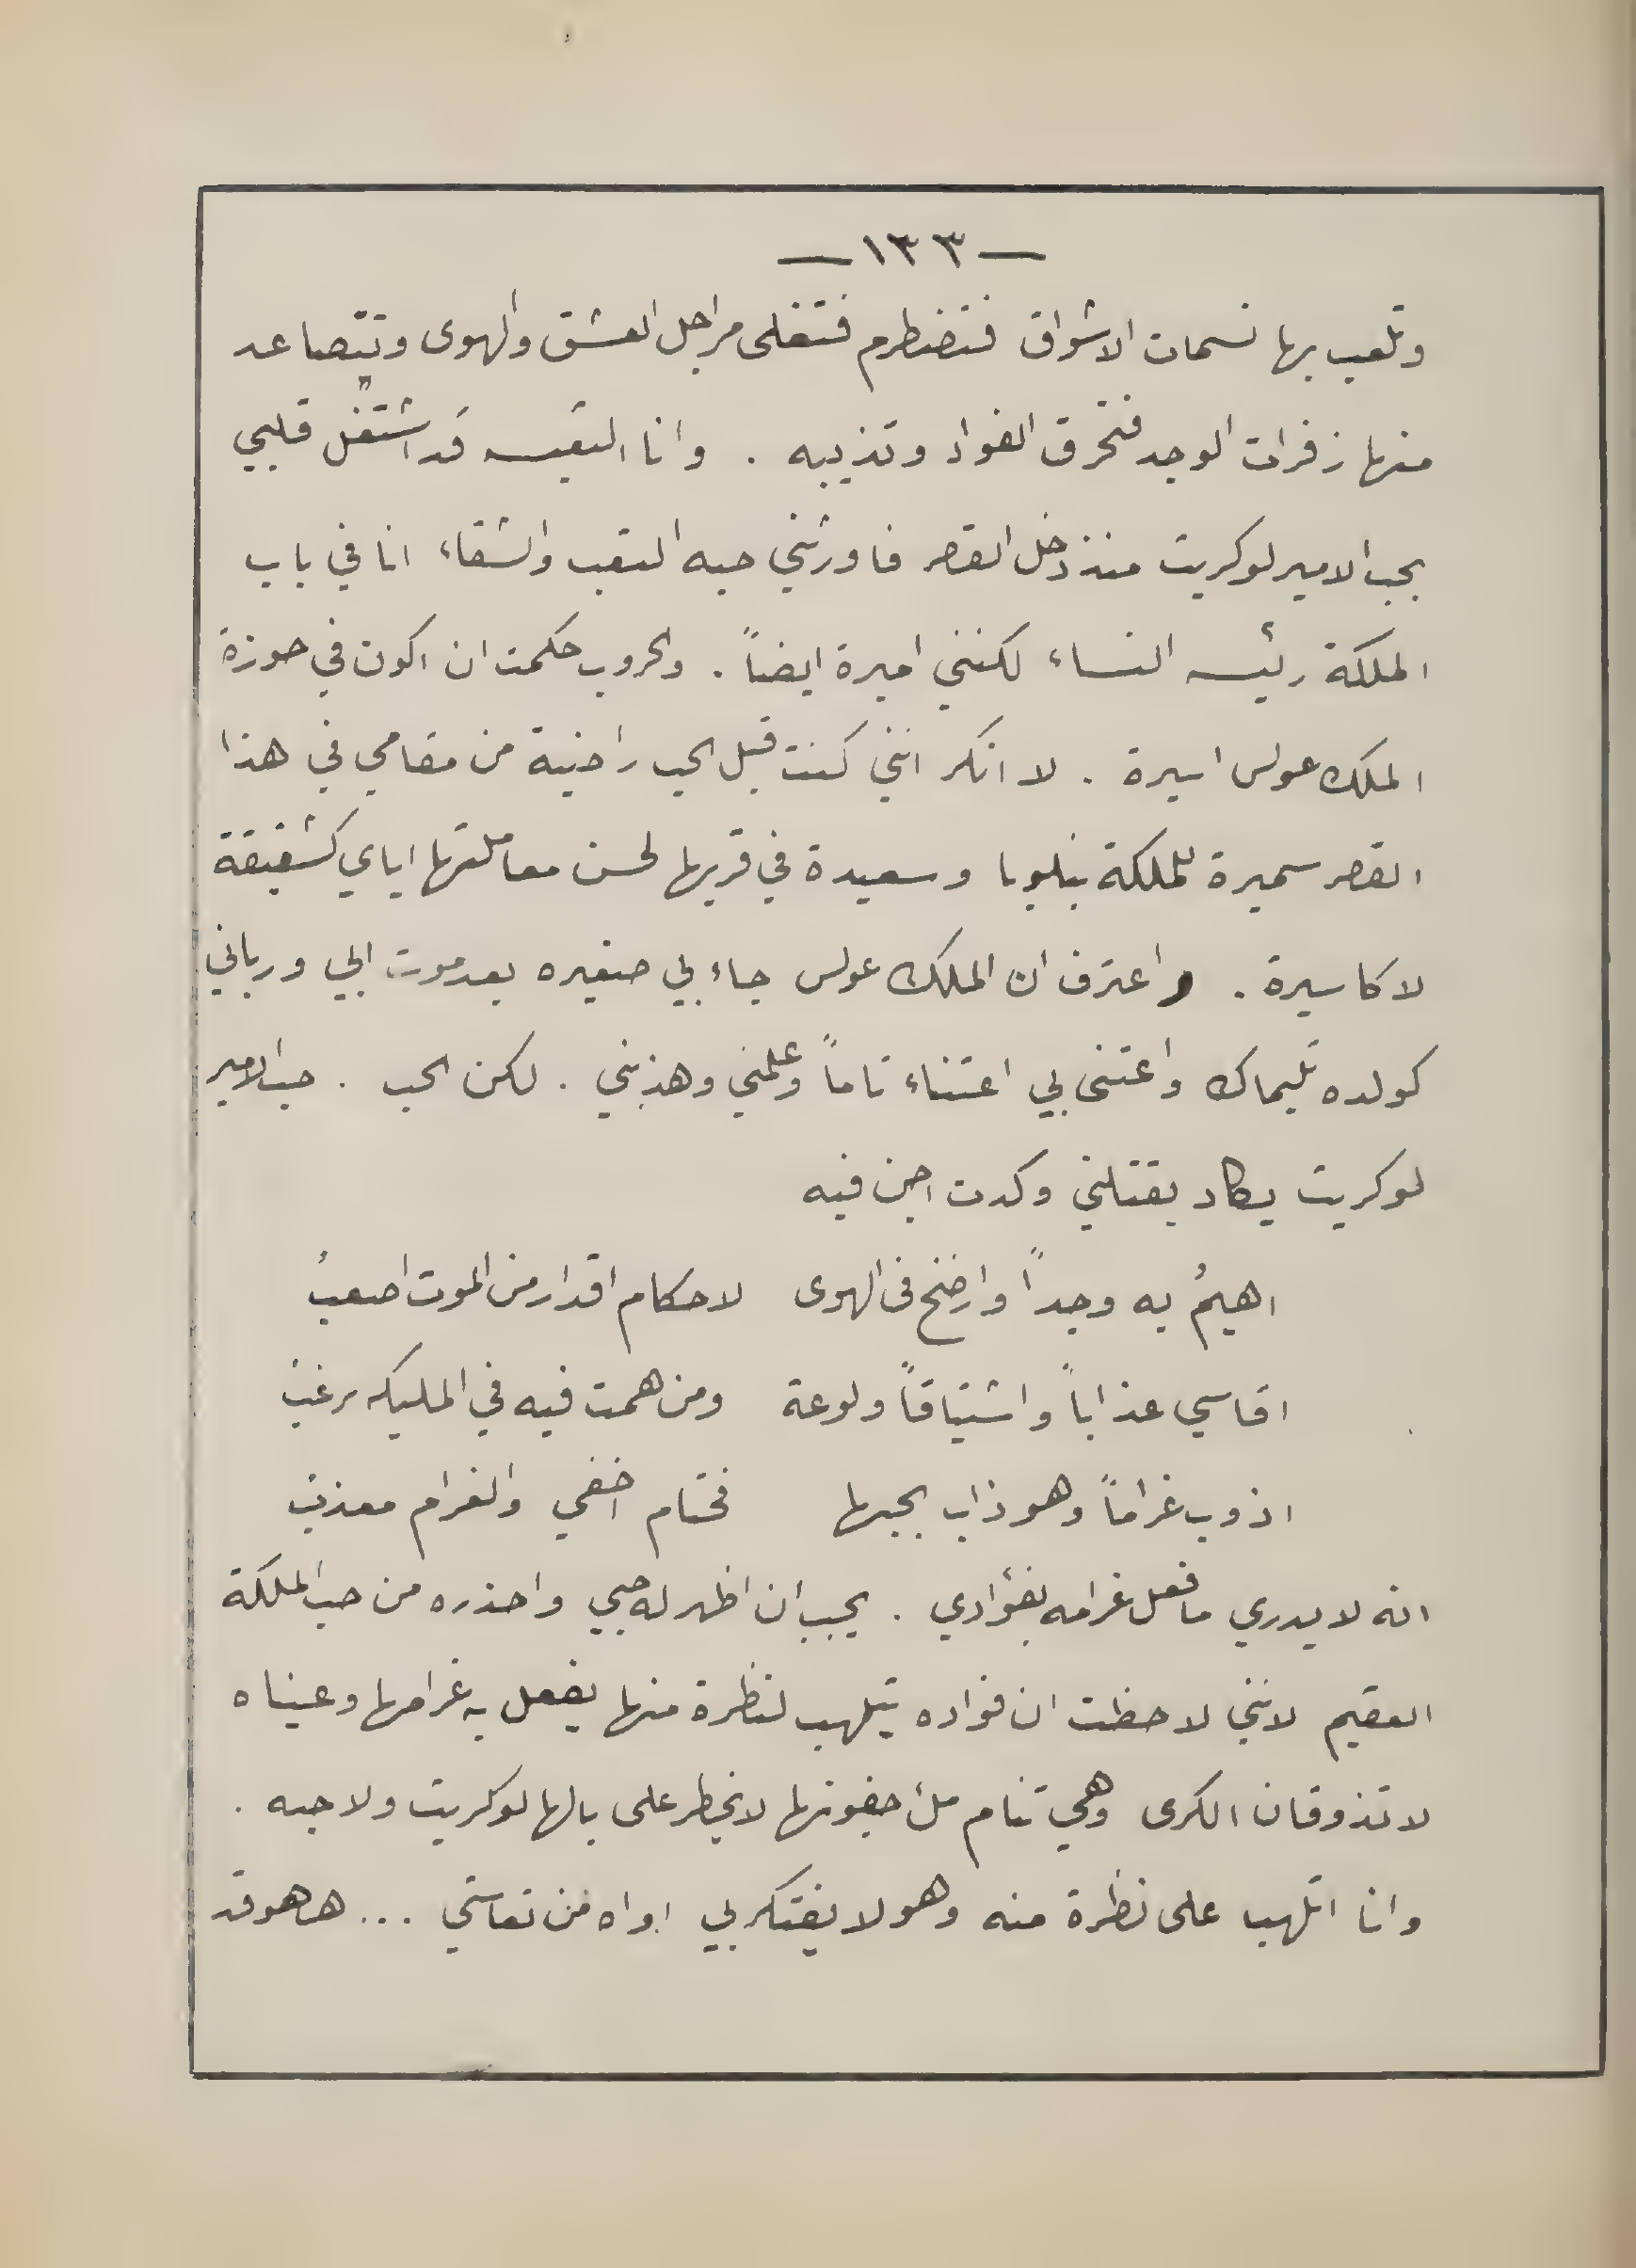 — ١٣٣ —
وتلعب بها نسمات الاشواق فتضطرم فتغلى مراجل العشق والهوى وتتصاعد
منها زفرات الوجد فتحرق الفواد وتذيبه . وانا التعيسه قد اشتغل قلبي
بحب الامير لوكريت منذ دخل القصر فاورثني حبه التعب والشقاء انا في باب
الملكة رئيسه النساء لكنني اميرة ايضاً . والحروب حكمت ان اكون في حوزة
الملك عولس اسيرة . لا انكر انني كنت قبل الحب راضية من مقامي في هذا
القصر سميرة للملكة بنلوبا وسعيدة في قربها لحسن معاملتها اياي كشقيقة
لا كاسيرة . واعترف ان الملك عولس جاء بي صغيره بعد موت ابي ورباني
كولده تليماك واعتنى بي اعتناء تاماً وعلمني وهذبني . لكن الحب . حب الامير
لوكريت يكاد يقتلني وكدت اجن فيه
اهيمُ به وجداً وارضخ فى الهوى لاحكام اقدار من الموت اصعبُ
اقاسي عذاباً واشتياقاً ولوعة ومن همت فيه في المليكه يرغبُ
اذوب غراماً وهو ذاب بحبها فحتام اخفي والغرام معذبُ
انه لا يدري ما فعل غرامه بفؤادي . يجب ان اظهر له حبي واحذره من حب الملكة
العقيم لانني لاحظت ان فواده يتلهب لنظرة منها يفعل به غرامها وعيناه
لا تذوقان الكرى وهي تنام ملئ جفونها لا يخطر على بالها لوكريت ولا حبه .
وانا اتلهب على نظرة منه وهو لا يفتكر بي اواه من تعاستي ... ها هو قد